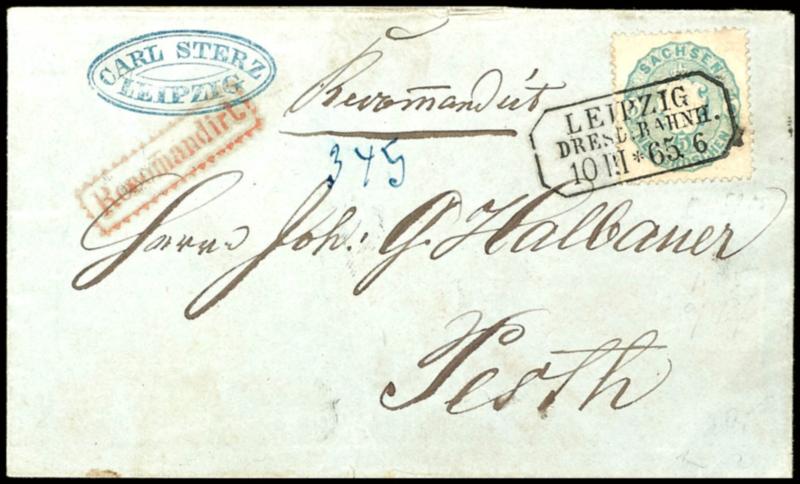 CARL STERZ
LEIPZIG
Recomandirt.
Recomandirt
345
SACHSEN
LEIPZIG
DRESD. BAHNH.
10 III * 65. 6
Herrn Joh: G. Halbauer
Pesth